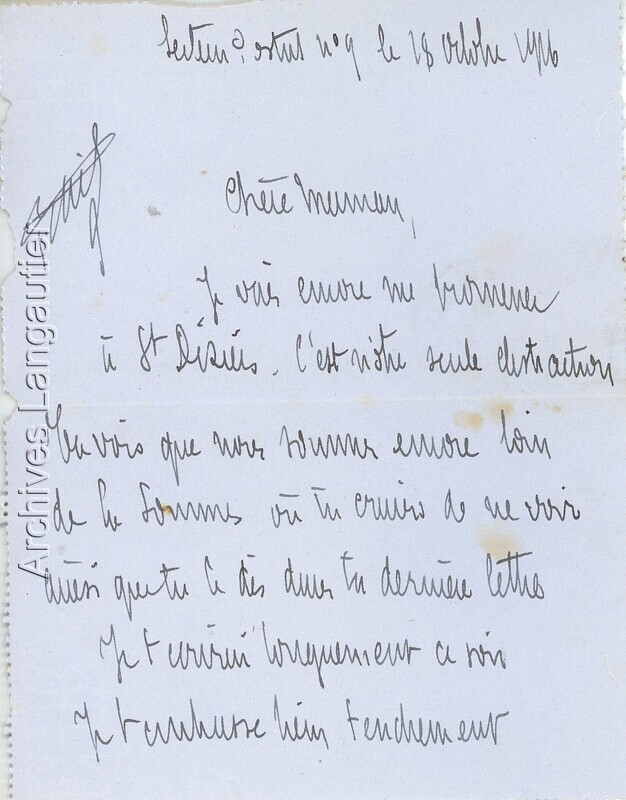 Secteur postal n° 9 le 18 octobre 1916
Chère Maman,
Je vais encore me promener
à St Dizier. C'est notre seule distraction
Tu vois que nous sommes encore loin
de la Somme où tu crains de me voir
ainsi que tu le dis dans ta dernière lettre
Je t'écrirai longuement ce soir
Je t'embrasse bien tendrement
Archives Langautier